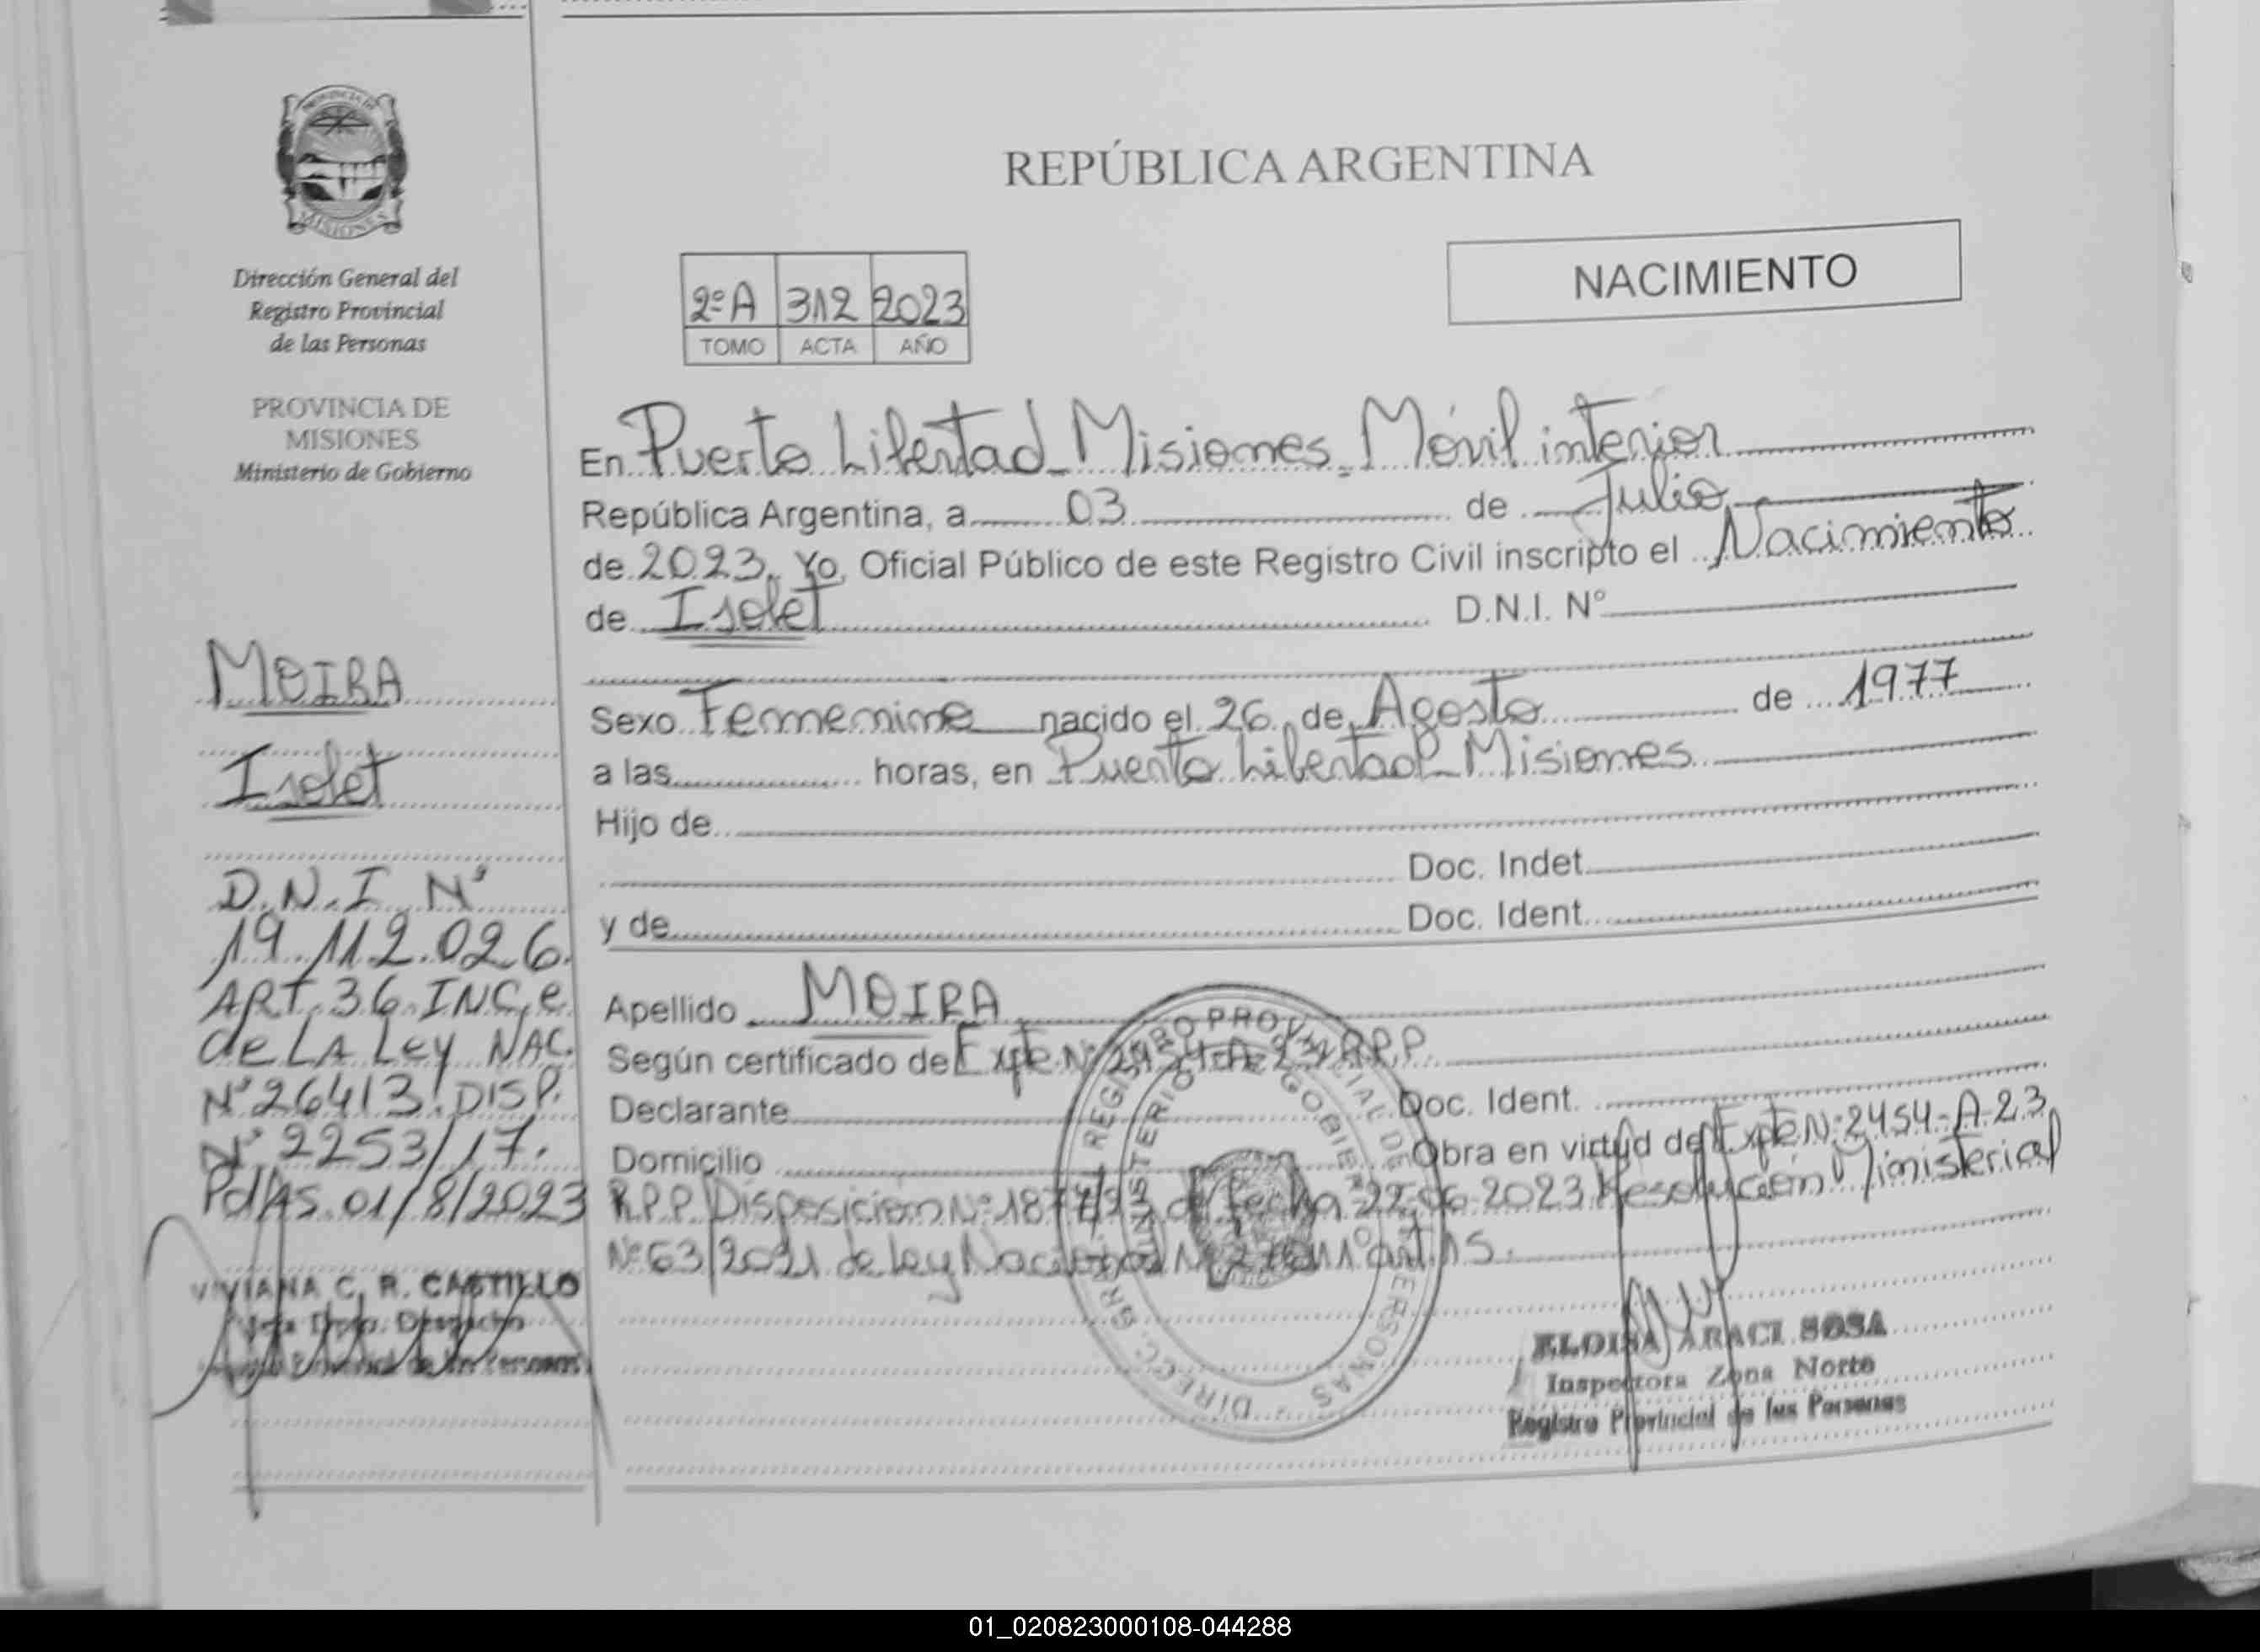 PROVINCIA DE
MISIONES
Dirección General del
Registro Provincial
de las Personas
PROVINCIA DE
MISIONES
Ministerio de Gobierno
MOIRA
Isolet
D.N.I N°
19.112.026.
ART. 36 INC, e
de LA Ley NAC.
N° 26413. DISP.
N° 2253/17.
PdAS. 01/8/2023
VIVIANA C. R. CASTILLO
Despacho
de las Personas
REPÚBLICA ARGENTINA
NACIMIENTO
2º A 312 2023
TOMO ACTA AÑO
En Puerto Libertad - Misiones - Móvil interior
República Argentina, a 03 de Julio
de 2023. Yo, Oficial Público de este Registro Civil inscripto el Nacimiento
de Isolet D.N.I. Nº
Sexo Femenino nacido el 26 de Agosto de 1977
a las horas, en Puerto Libertad - Misiones
Hijo de
Doc. Indet.
y de Doc. Ident.
Apellido MOIRA
Según certificado de Expte Nº 2454-A-23 R.P.P.
Declarante Doc. Ident.
Domicilio Obra en virtud de Expte Nº 2454-A-23
R.P.P. Disposición Nº 1877/23 de fecha 22-06-2023 Resolución Ministerial
Nº 63/2021 de Ley Nacional art. 15.
DIRECC. GRAL. DEL REGISTRO PROVINCIAL DE LAS PERSONAS
MINISTERIO DE GOBIERNO
ELOISA ARACI SOSA
Inspectora Zona Norte
Registro Provincial de las Personas
01_020823000108-044288